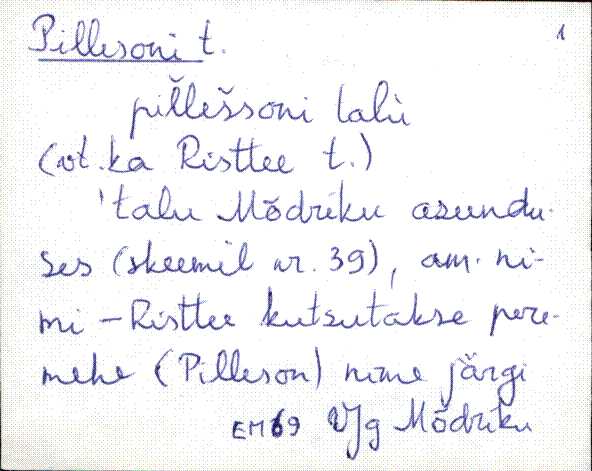 Pillesoni t. 1
pil̆lešsoni talù
(vt. ka Risttee t.)
'talu Mõdriku asundu-
ses (skeemil nr. 39), am. ni-
mi - Risttee kutsutakse pere-
mehe (Pilleson) nime järgi
EM69 VJg Mõdriku